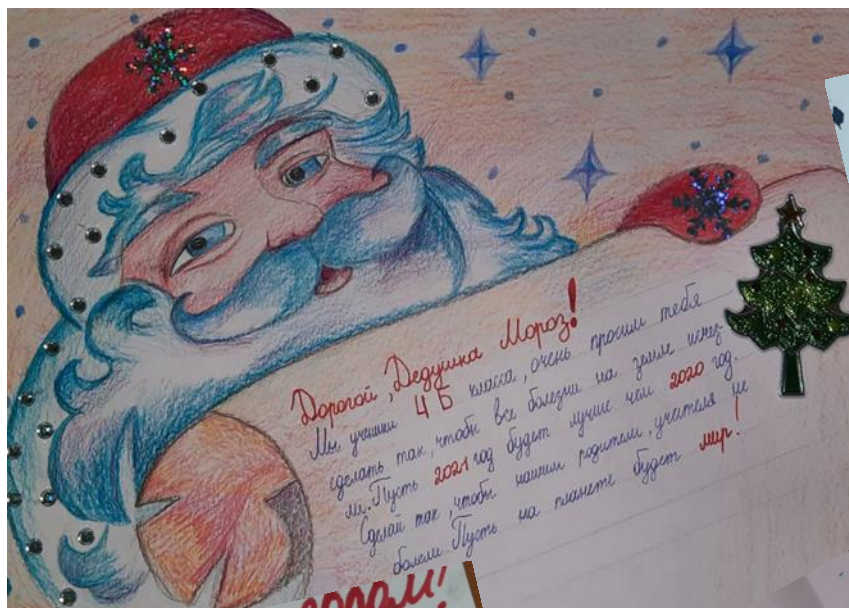 Дорогой, Дедушка Мороз!
Мы ученики 4Б класса, очень просим тебя
сделать так, чтобы все болезни на земле исчез-
ли. Пусть 2021 год будет лучше чем 2020 год.
Сделай так, чтобы нашим родители, учителя не
болели. Пусть на планете будет мир!
годом!